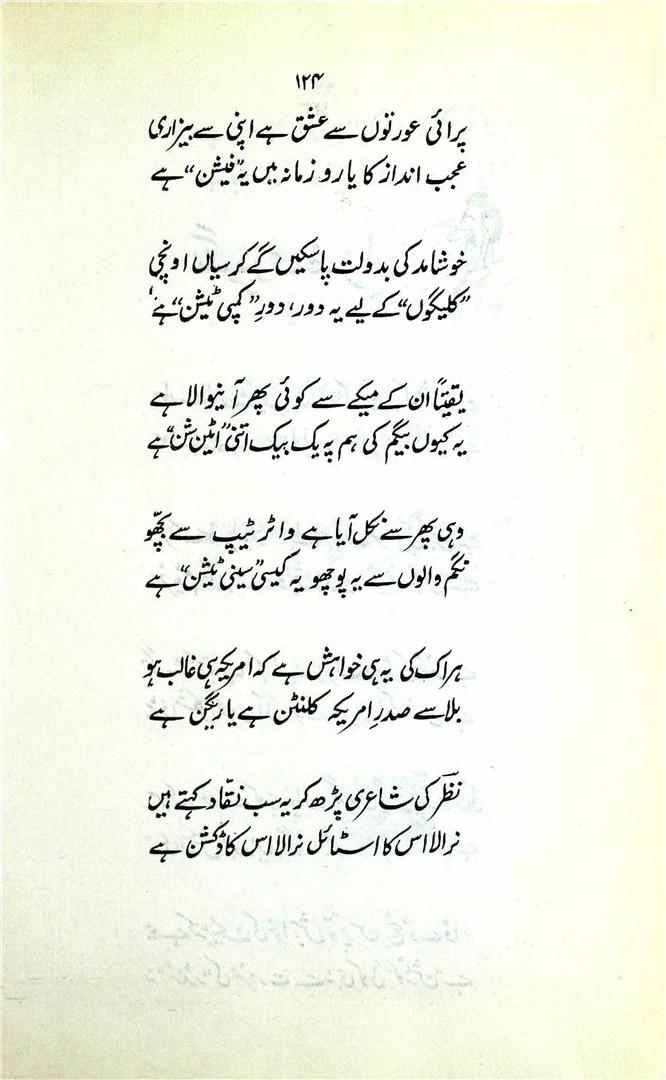 ۱۲۴
پرائی عورتوں سے عشق ہے اپنی سے بیزاری
عجب انداز کا یارو زمانہ میں یہ "فیشن" ہے
خوشامد کی بدولت پاسکیں گے کرسیاں اونچی
"کلیگوں" کے لیے یہ دور، دورِ "کمپی ٹیشن" ہے'
یقیناً ان کے میکے سے کوئی پھر آنیوالا ہے
یہ کیوں بیگم کی ہم پہ یک بیک اتنی "اٹین شن" ہے
وہی پھر سے نکل آیا ہے واٹر ٹیپ سے بچھّو
نگم والوں سے یہ پوچھو یہ کیسی "سینی ٹیشن" ہے
ہر اک کی یہ ہی خواہش ہے کہ امریکہ ہی غالب ہو
بلا سے صدرِ امریکہ کلنٹن ہے یا ریگن ہے
نظرؔ کی شاعری پڑھ کر یہ سب نقّاد کہتے ہیں
نرالا اس کا اسٹائل نرالا اس کا ڈکشن ہے